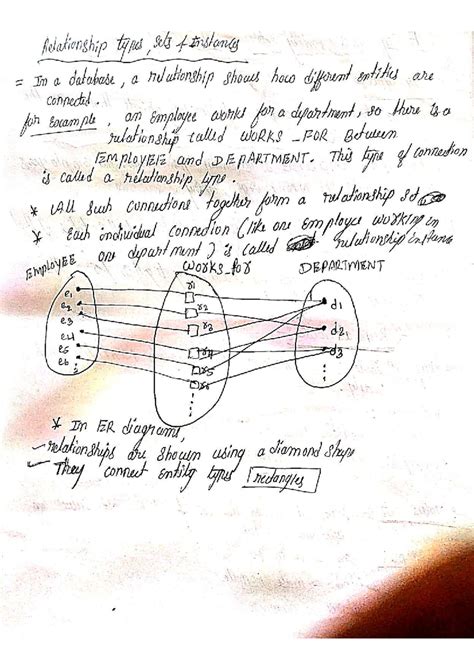 Relationship types, sets & Instances
= In a database, a relationship shows how different entities are
connected.
for Example, an employee works for a department, so there is a
relationship called WORKS_FOR Between
EMPLOYEE and DEPARTMENT. This type of connection
is called a relationship type.
* All such connections together form a relationship set
* Each individual connection (like one employee working in
one department) is called relationship instance
EMPLOYEE WORKS_for DEPARTMENT
e1 r1 d1
e2 r2
e3 r3 d2
e4 r4 d3
e5 r5
e6 r6
* In ER diagrams,
- relationships are shown using a diamond shape
- They connect entity types rectangles